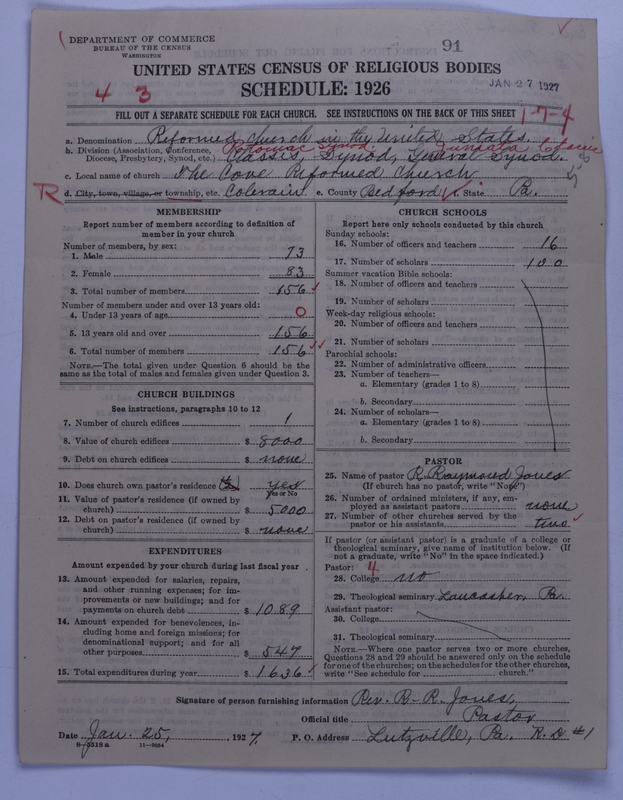 DEPARTMENT OF COMMERCE
BUREAU OF THE CENSUS
WASHINGTON
91
UNITED STATES CENSUS OF RELIGIOUS BODIES
JAN 27 1927
SCHEDULE: 1926
4 3
FILL OUT A SEPARATE SCHEDULE FOR EACH CHURCH. SEE INSTRUCTIONS ON THE BACK OF THIS SHEET
1-7-4
a. Denomination Reformed Church in the United States.
b. Division (Association, Conference, Potomac Synod. Juniata Classis
Diocese, Presbytery, Synod, etc.) Classis, Synod, General Synod.
c. Local name of church The Cove Reformed Church
R d. City, town, village, or township, etc. Colerain e. County Bedford f. State Pa.
MEMBERSHIP
Report number of members according to definition of
member in your church
Number of members, by sex:
1. Male 73
2. Female 83
3. Total number of members 156
Number of members under and over 13 years old:
4. Under 13 years of age 0
5. 13 years old and over 156
6. Total number of members 156
NOTE.—The total given under Question 6 should be
same as the total of males and females given under Question 3.
CHURCH BUILDINGS
See instructions, paragraphs 10 to 12
7. Number of church edifices 1
8. Value of church edifices $ 8000
9. Debt on church edifices $ none
10. Does church own pastor's residence yes
Yes or No
11. Value of pastor's residence (if owned by
church) $ 5000
12. Debt on pastor's residence (if owned by
church) $ none
EXPENDITURES
Amount expended by your church during last fiscal year
13. Amount expended for salaries, repairs,
and other running expenses; for im-
provements or new buildings; and for
payments on church debt $ 1089
14. Amount expended for benevolences, in-
cluding home and foreign missions; for
denominational support; and for all
other purposes $ 547
15. Total expenditures during year $ 1636
CHURCH SCHOOLS
Report here only schools conducted by this church
Sunday schools:
16. Number of officers and teachers 16
17. Number of scholars 100
Summer vacation Bible schools:
18. Number of officers and teachers
19. Number of scholars
Week-day religious schools:
20. Number of officers and teachers
21. Number of scholars
Parochial schools:
22. Number of administrative officers
23. Number of teachers—
a. Elementary (grades 1 to 8)
b. Secondary
24. Number of scholars—
a. Elementary (grades 1 to 8)
b. Secondary
PASTOR
25. Name of pastor R. Raymond Jones
(If church has no pastor, write "None")
26. Number of ordained ministers, if any, em-
ployed as assistant pastors none
27. Number of other churches served by the
pastor or his assistants two
If pastor (or assistant pastor) is a graduate of a college or
theological seminary, give name of institution below. (If
not a graduate, write "No" in the space indicated.)
Pastor: 4
28. College no
29. Theological seminary Lancaster, Pa.
Assistant pastor:
30. College
31. Theological seminary
NOTE.—Where one pastor serves two or more churches,
Questions 28 and 29 should be answered only on the schedule
for one of the churches; on the schedules for the other churches,
write "See schedule for church."
Signature of person furnishing information Rev. R. R. Jones,
Official title Pastor
Date Jan. 25, 1927. P. O. Address Lutzville, Pa. R. D #1
8-5518a 11-9054